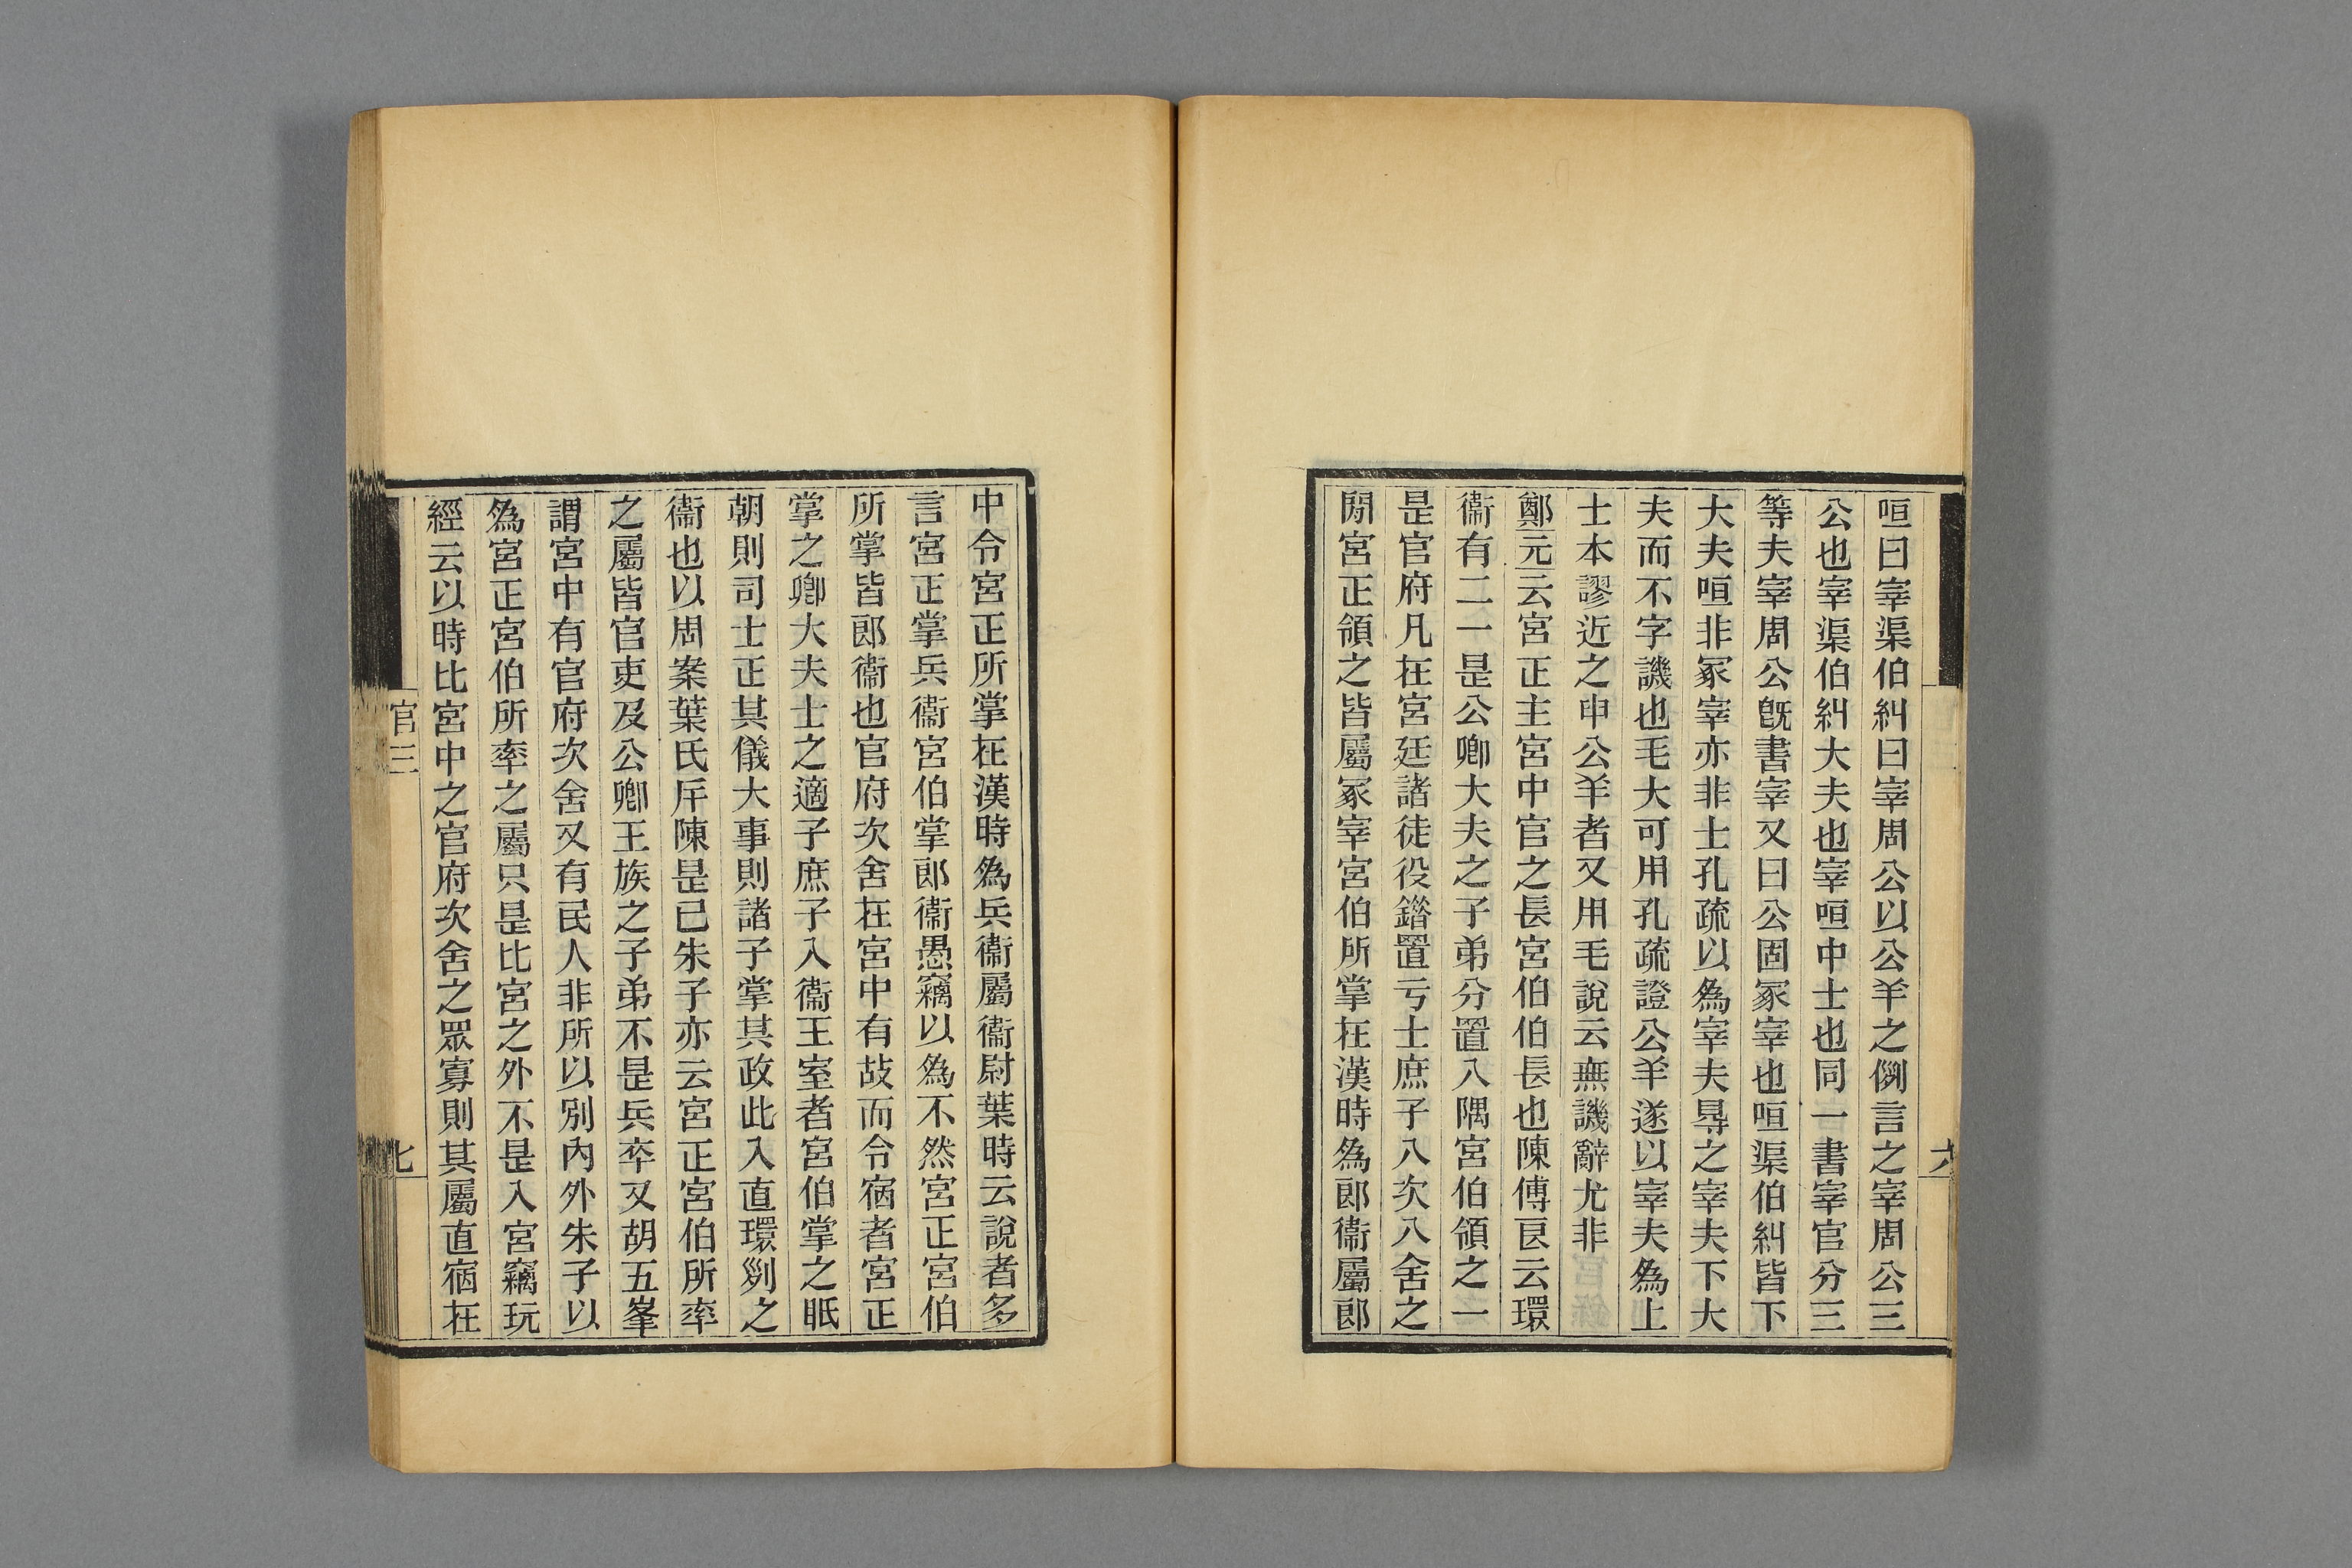 咺曰宰渠伯糾曰宰周公以公羊之例言之宰周公三
公也宰渠伯糾大夫也宰咺中士也同一書宰官分三
等夫宰周公旣書宰又曰公固冢宰也咺渠伯糾皆下
大夫咺非冢宰亦非士孔疏以爲宰夫㝵之宰夫下大
夫而不字譏也毛大可用孔疏證公羊遂以宰夫爲上
士本謬近之申公羊者又用毛說云無譏辭尤非
鄭元云宮正主宮中官之長宮伯伯長也陳傅良云環
衞有二一是公卿大夫之子弟分置八隅宮伯領之一
是官府凡在宮廷諸徒役錯置亏士庶子八次八舍之
閒宮正領之皆屬冢宰宮伯所掌在漢時爲郎衞屬郎
六
中令宮正所掌在漢時爲兵衞屬衞尉葉時云說者多
言宮正掌兵衞宮伯掌郎衞愚竊以爲不然宮正宮伯
所掌皆郎衞也官府次舍在宮中有故而令宿者宮正
掌之卿大夫士之適子庶子入衞王室者宮伯掌之眂
朝則司士正其儀大事則諸子掌其政此入直環列之
衞也以周案葉氏㡿陳是已朱子亦云宮正宮伯所率
之屬皆官吏及公卿王族之子弟不是兵卒又胡五峯
謂宮中有官府次舍又有民人非所以別內外朱子以
爲宮正宮伯所率之屬只是比宮之外不是入宮竊玩
經云以時比宮中之官府次舍之眾寡則其屬直宿在
官三
七